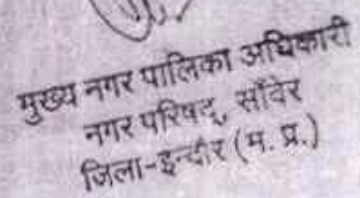 मुख्य नगर पालिका अधिकारी
नगर परिषद्, साँवेर
जिला-इन्दौर (म. प्र.)